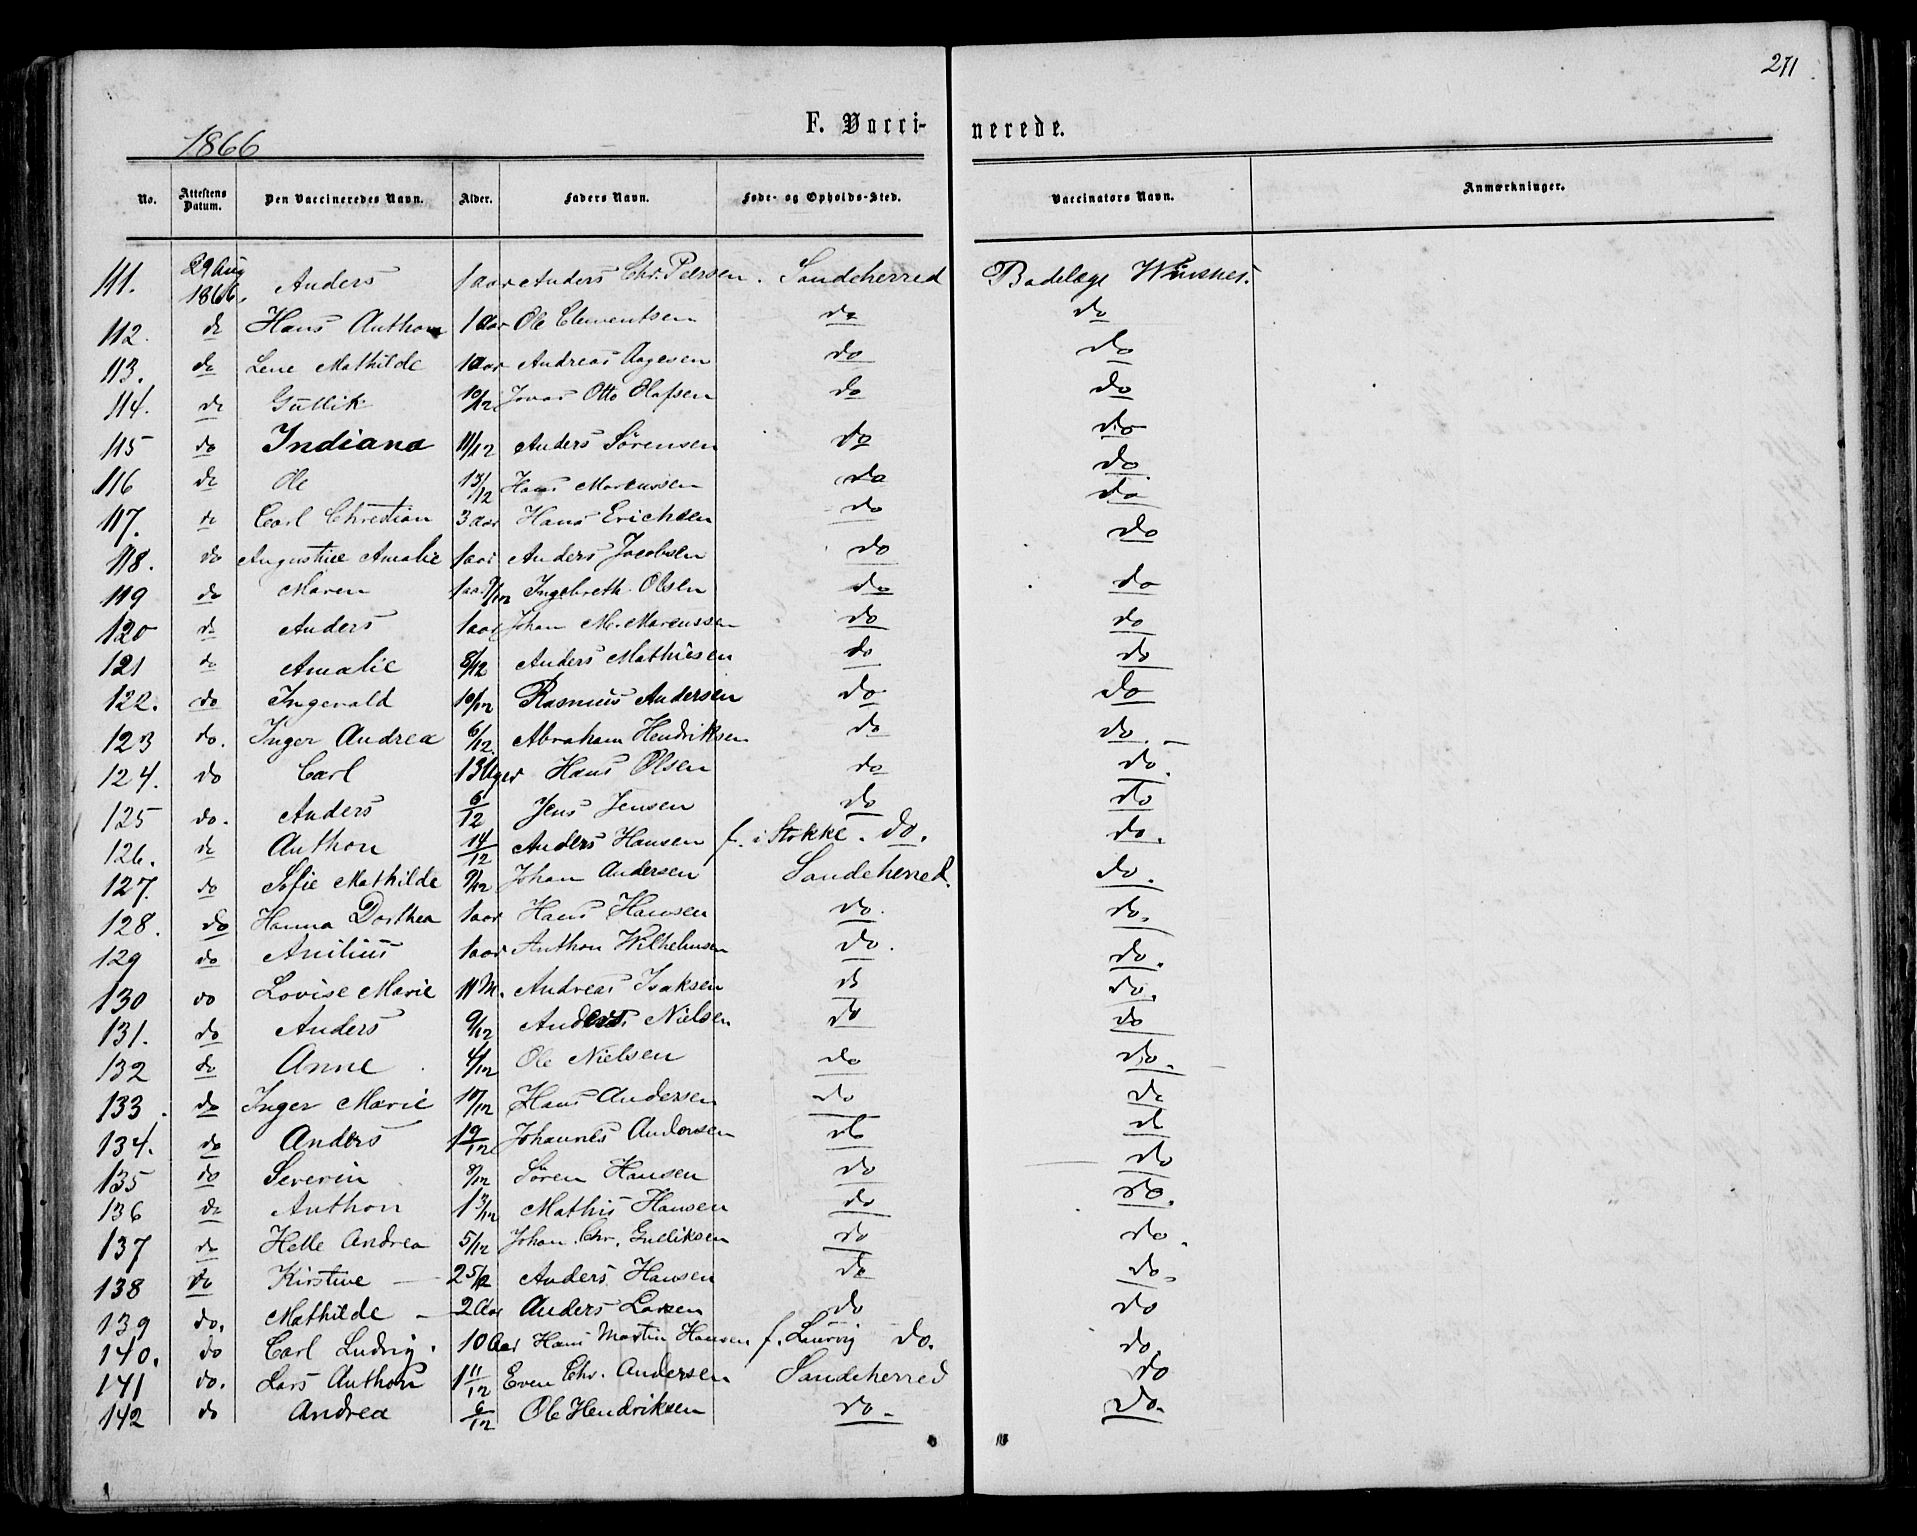 271
1866 F. Vacci- nerede.
No. Attestens Datum. Den Vaccineredes Navn. Alder. Faders Navn. Føde- og Opholds-Sted. Vaccinators Navn. Anmærkninger.
111. 29 Aug 1866. Anders 1 aar Anders Chr. Pedersen. Sandeherred Badelæge
112. do Hans Anthon 1 aar Ole Clementsen do do
113. do Lene Mathilde 1 aar Andreas Aagesen do do
114. do Gullik 10/12 Jonas Otto Olafsen do do
115 do Indiana 11/12 Anders Sörensen do do
116 do Ole 13/12 Hans Marcussen do do
117. do Carl Christian 3 aar Hans Erichsen do do
118. do Augustine Amalie 1 aar Anders Jacobsen do do
119 do Maren 1 aar Ingebreth Olsen do do
120 do Anders 1 aar Johan M. Marcussen do do
121 do Amalie 8/12 Anders Mathisen do do
122. do Ingevald 10/12 Rasmus Andersen do do
123 do. Inger Andrea 6/12. Abraham Hendriksen do do.
124. do Carl 13 Uger Hans Olsen do do.
125 do. Anders 6/12 Jens Jensen do do
126. do Anthon 14/12 Anders Hansen f. i Stokke. do. do.
127. do Sofie Mathilde 9/12 Johan Andersen Sandeherred. do.
128. do Hanna Dorthea 1 aar Hans Hansen do. do.
129 do Anilius 1 aar Anthon Wilhelmsen do. do.
130 do Lovise Marie 11 M. Andreas Isaksen do do.
131. do Anders 9/12 Anders Nielsen do do
132 do Anne 4/12 Ole Nielsen do do.
133. do Inger Marie 10/12 Hans Andersen do do
134. do Anders 1 9/12 Johannes Andersen do do
135 do Severin 9/12 Sören Hansen do do
136 do Anthon 1 3/12 Mathis Hansen do do.
137 do Helle Andrea 5/12 Johan Chr. Gulliksen do do.
138 do Kirstine — 2 5/12 Anders Hansen do do.
139 do. Mathilde — 2 Aar Anders Larsen do do
140. do Carl Ludvig. 10 Aar Hans Martin Hansen f. Laurvig do. do.
141 do. Lars Anthon 1 11/12 Even Chr. Andersen Sandeherred do
142 do Andrea 6/12 Ole Hendriksen do. do.